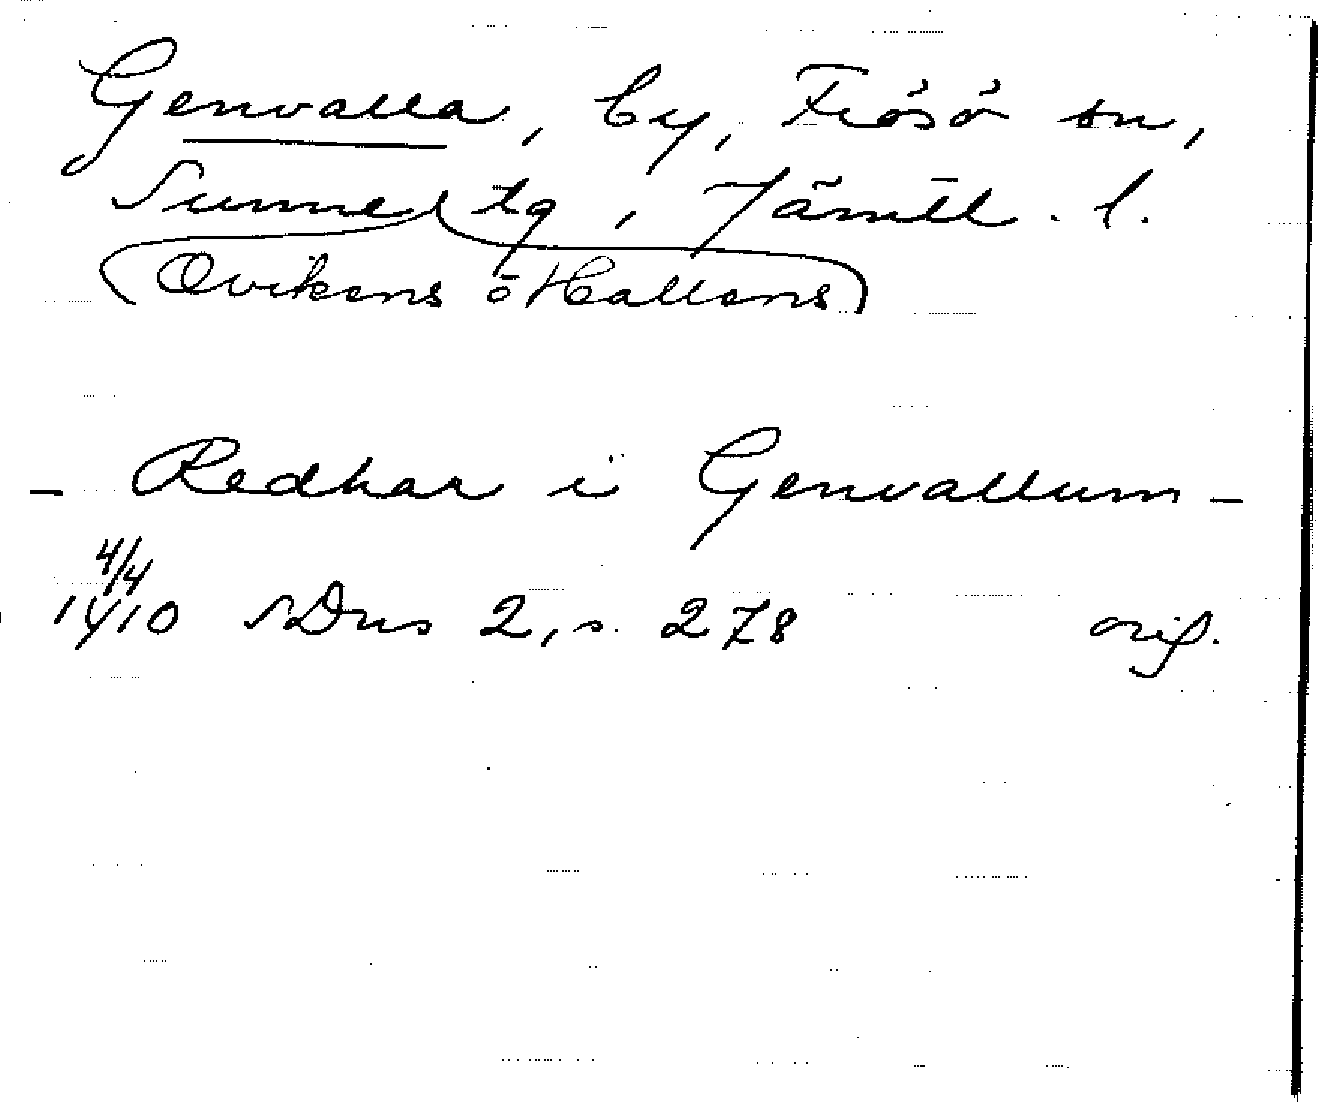 Genvalla, by, Frösö sn,
Sunne tg, Jämtl. l.
(Ovikens o Hallens)
- Redhar i Genvallum -
4/4
1410 SDns 2, s. 278 orig.